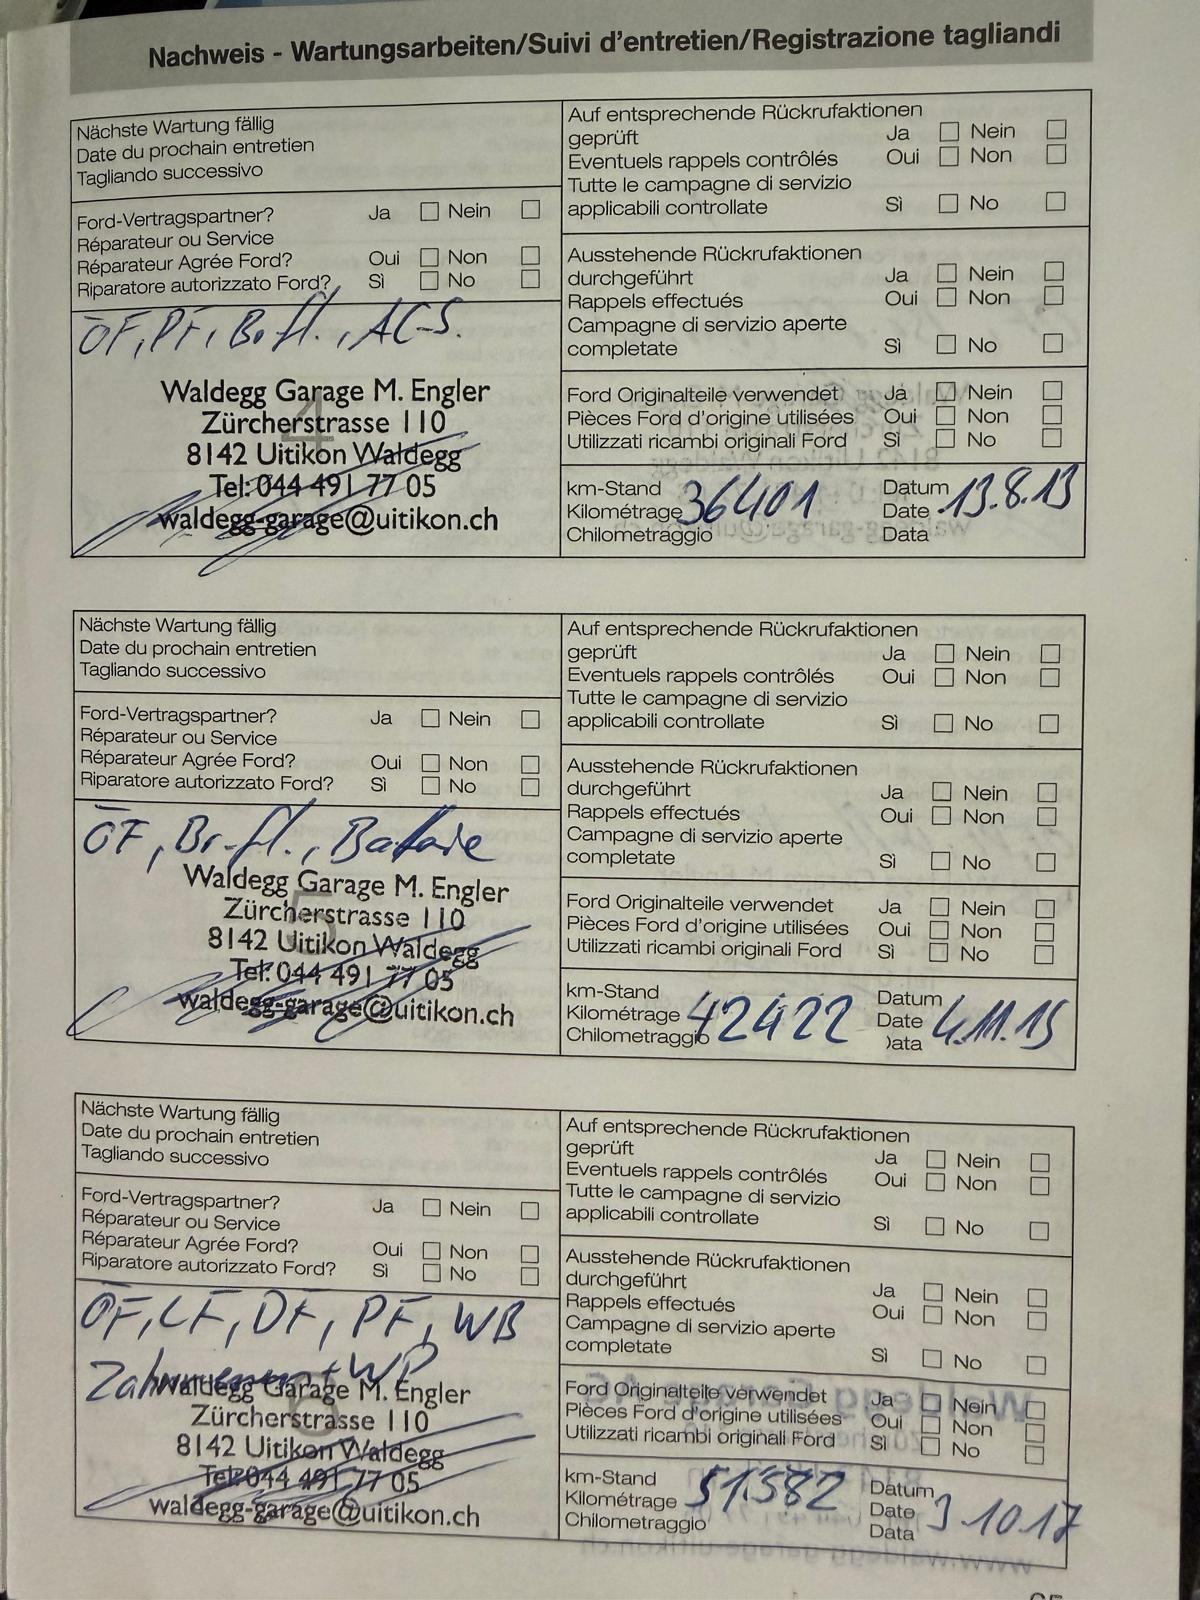 Nachweis - Wartungsarbeiten/Suivi d'entretien/Registrazione tagliandi
Nächste Wartung fällig
Date du prochain entretien
Tagliando successivo
Ford-Vertragspartner? Ja Nein
Réparateur ou Service
Réparateur Agrée Ford? Oui Non
Riparatore autorizzato Ford? Sì No
ÖF, PF, Br.fl., ACS.
4
Waldegg Garage M. Engler
Zürcherstrasse 110
8142 Uitikon Waldegg
Tel: 044 491 77 05
waldegg-garage@uitikon.ch
Auf entsprechende Rückrufaktionen
geprüft Ja Nein
Eventuels rappels contrôlés Oui Non
Tutte le campagne di servizio
applicabili controllate Sì No
Ausstehende Rückrufaktionen
durchgeführt Ja Nein
Rappels effectués Oui Non
Campagne di servizio aperte
completate Sì No
Ford Originalteile verwendet Ja Nein
Pièces Ford d'origine utilisées Oui Non
Utilizzati ricambi originali Ford Sì No
km-Stand Datum
Kilométrage 36401 Date 13.8.13
Chilometraggio Data
Nächste Wartung fällig
Date du prochain entretien
Tagliando successivo
Ford-Vertragspartner? Ja Nein
Réparateur ou Service
Réparateur Agrée Ford? Oui Non
Riparatore autorizzato Ford? Sì No
ÖF, Br.fl., Batterie
5
Waldegg Garage M. Engler
Zürcherstrasse 110
8142 Uitikon Waldegg
Tel: 044 491 77 05
waldegg-garage@uitikon.ch
Auf entsprechende Rückrufaktionen
geprüft Ja Nein
Eventuels rappels contrôlés Oui Non
Tutte le campagne di servizio
applicabili controllate Sì No
Ausstehende Rückrufaktionen
durchgeführt Ja Nein
Rappels effectués Oui Non
Campagne di servizio aperte
completate Sì No
Ford Originalteile verwendet Ja Nein
Pièces Ford d'origine utilisées Oui Non
Utilizzati ricambi originali Ford Sì No
km-Stand Datum
Kilométrage 42422 Date 4.11.15
Chilometraggio Data
Nächste Wartung fällig
Date du prochain entretien
Tagliando successivo
Ford-Vertragspartner? Ja Nein
Réparateur ou Service
Réparateur Agrée Ford? Oui Non
Riparatore autorizzato Ford? Sì No
ÖF, LF, DF, PF, WB
+ WP
6
Waldegg Garage M. Engler
Zürcherstrasse 110
8142 Uitikon Waldegg
Tel: 044 491 77 05
waldegg-garage@uitikon.ch
Auf entsprechende Rückrufaktionen
geprüft Ja Nein
Eventuels rappels contrôlés Oui Non
Tutte le campagne di servizio
applicabili controllate Sì No
Ausstehende Rückrufaktionen
durchgeführt Ja Nein
Rappels effectués Oui Non
Campagne di servizio aperte
completate Sì No
Ford Originalteile verwendet Ja Nein
Pièces Ford d'origine utilisées Oui Non
Utilizzati ricambi originali Ford Sì No
km-Stand Datum
Kilométrage 51582 Date 3.10.17
Chilometraggio Data